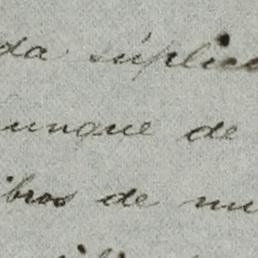 da súplica
unque de
ibros de mu